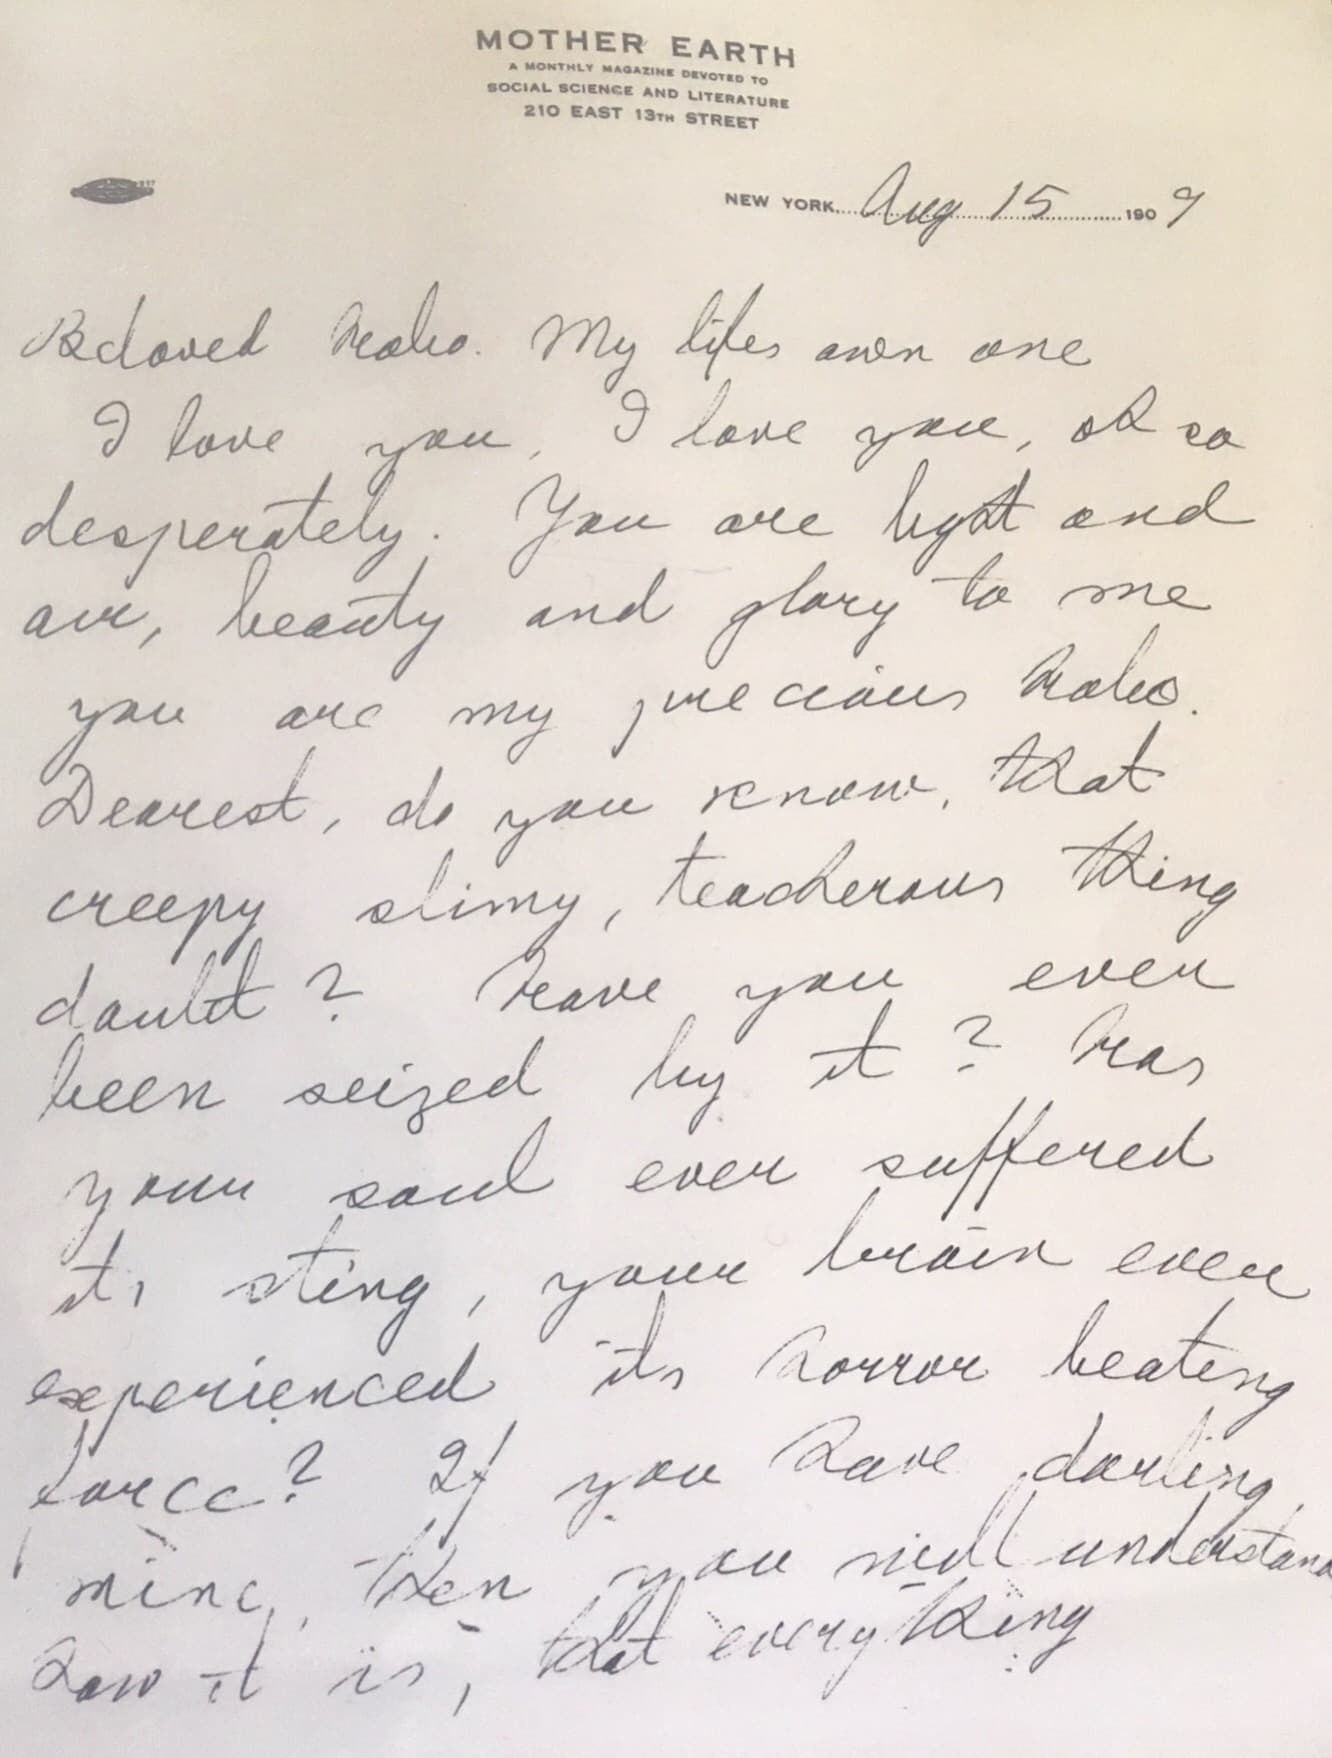 MOTHER EARTH
A MONTHLY MAGAZINE DEVOTED TO
SOCIAL SCIENCE AND LITERATURE
210 EAST 13TH STREET
NEW YORK Aug 15 1909
Beloved Hobo. My lifes own one
I love you, I love you, oh so
desperately. You are light and
air, beauty and glory to me
you are my precious Hobo.
Dearest, do you know, that
creepy slimy, teacherous thing
doubt? Have you ever
been seized by it? Has
your soul ever suffered
its sting, your brain ever
experienced its horror beating
force? If you have darling
mine, then you will understand
how it is, that everything